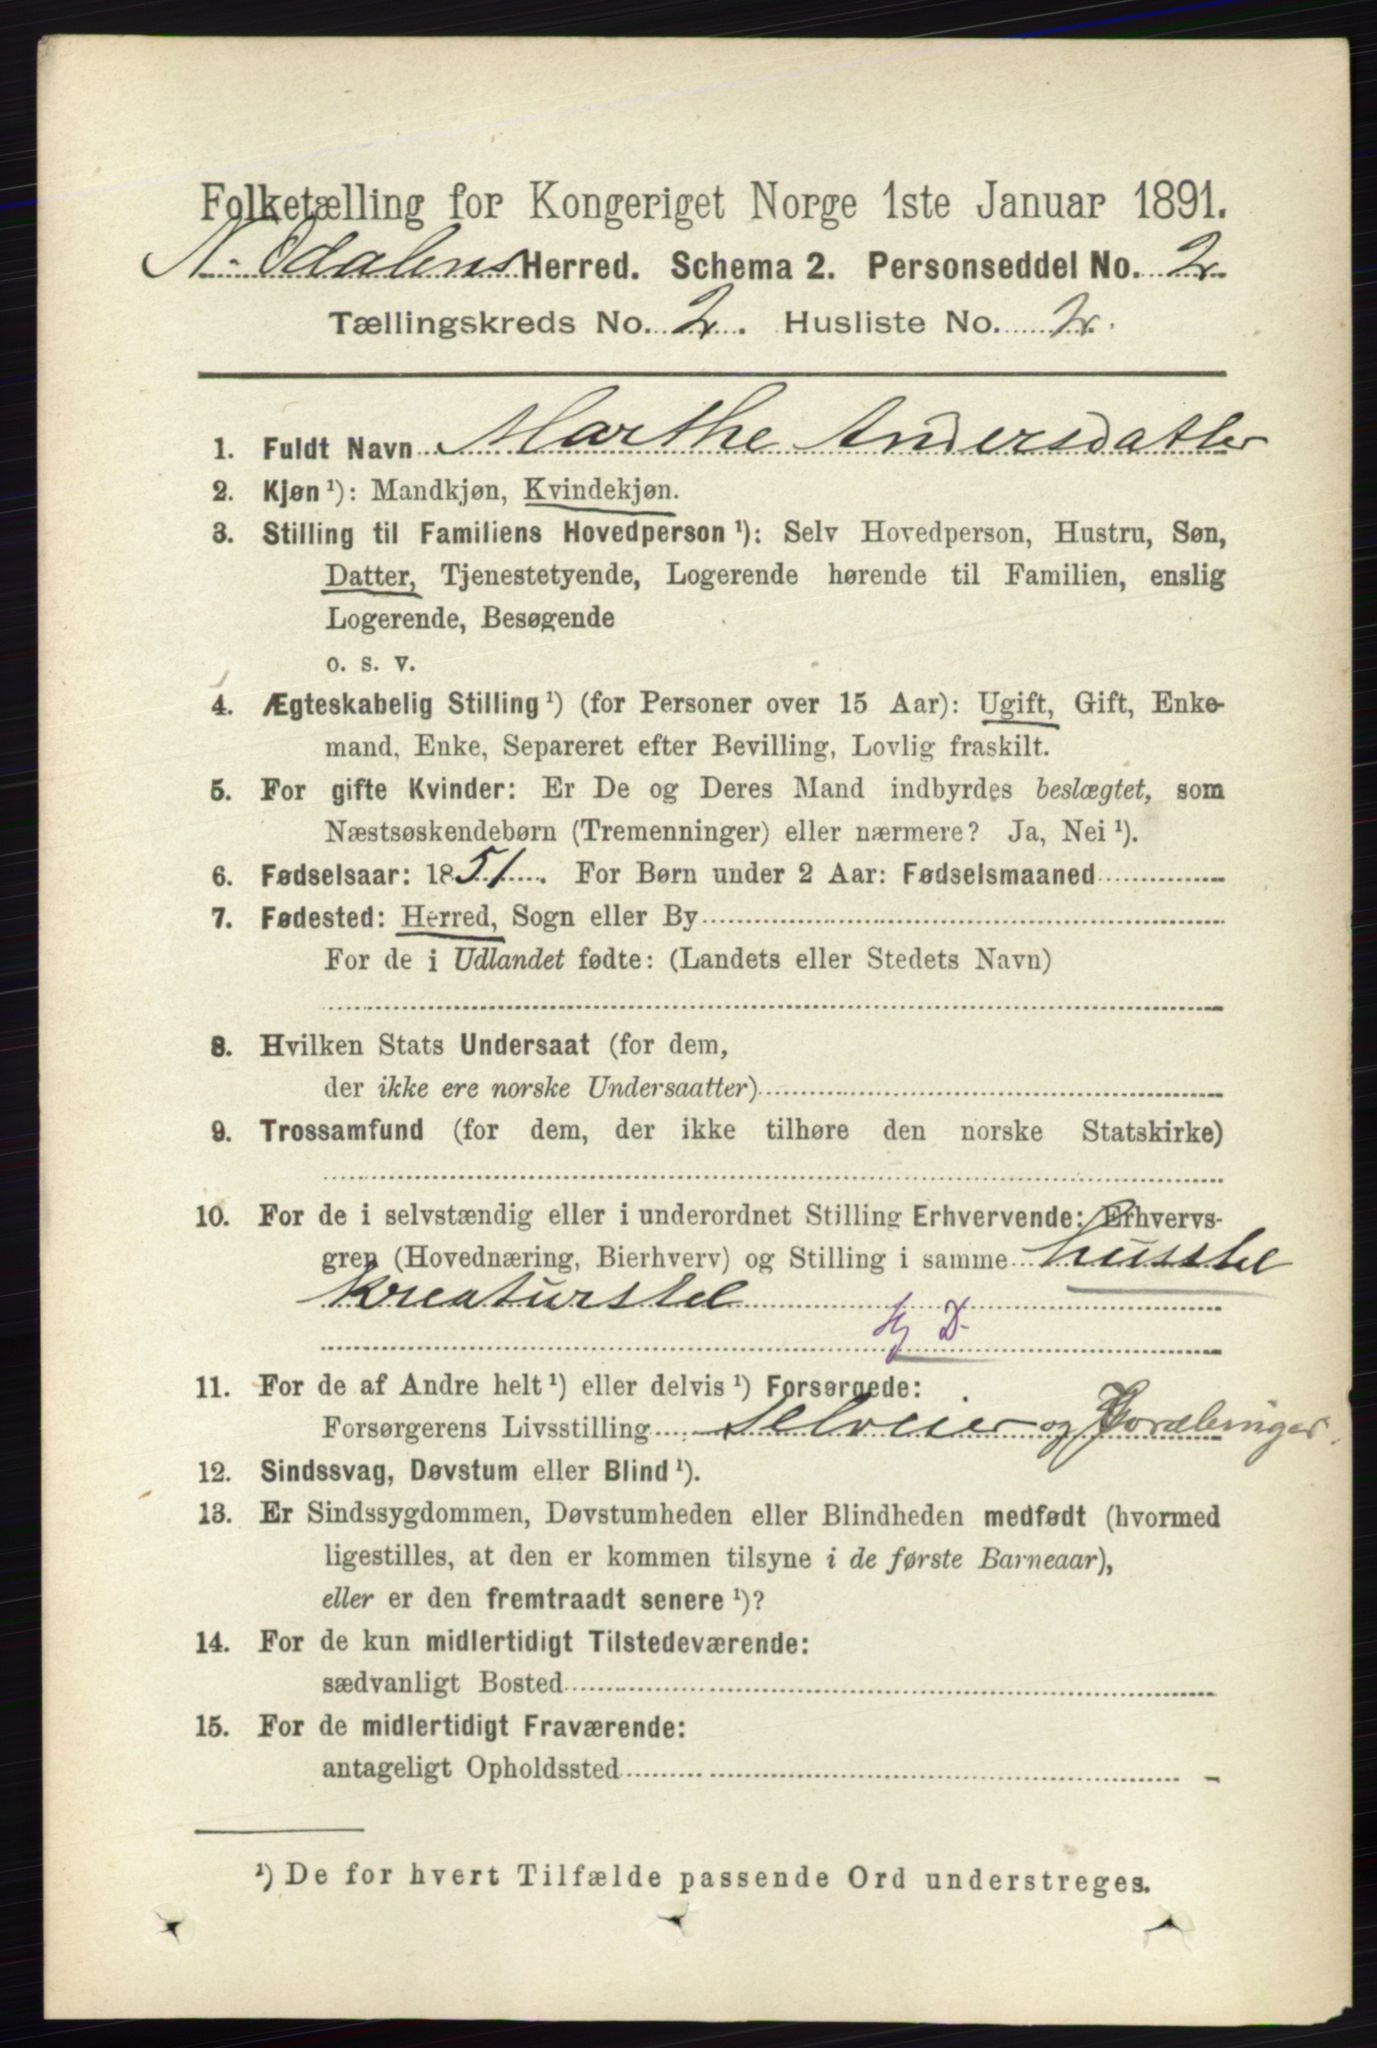 Folketælling for Kongeriget Norge 1ste Januar 1891.
N. Odalens Herred. Schema 2. Personseddel No. 2
Tællingskreds No. 2. Husliste No. 2.
1. Fuldt Navn Marthe Andersdatter
2. Kjøn ¹): Mandkjøn, Kvindekjøn.
3. Stilling til Familiens Hovedperson ¹): Selv Hovedperson, Hustru, Søn,
Datter, Tjenestetyende, Logerende hørende til Familien, enslig
Logerende, Besøgende
o. s. v.
4. Ægteskabelig Stilling ¹) (for Personer over 15 Aar): Ugift, Gift, Enke-
mand, Enke, Separeret efter Bevilling, Lovlig fraskilt.
5. For gifte Kvinder: Er De og Deres Mand indbyrdes beslægtet, som
Næstsøskendebørn (Tremenninger) eller nærmere? Ja, Nei ¹).
6. Fødselsaar: 1851. For Børn under 2 Aar: Fødselsmaaned
7. Fødested: Herred, Sogn eller By
For de i Udlandet fødte: (Landets eller Stedets Navn)
8. Hvilken Stats Undersaat (for dem,
der ikke ere norske Undersaatter)
9. Trossamfund (for dem, der ikke tilhøre den norske Statskirke)
10. For de i selvstændig eller i underordnet Stilling Erhvervende: Erhvervs-
gren (Hovednæring, Bierhverv) og Stilling i samme husstel
kreaturstel
Hj D.
11. For de af Andre helt ¹) eller delvis ¹) Forsørgede:
Forsørgerens Livsstilling Selveier og
12. Sindssvag, Døvstum eller Blind ¹).
13. Er Sindssygdommen, Døvstumheden eller Blindheden medfødt (hvormed
ligestilles, at den er kommen tilsyne i de første Barneaar),
eller er den fremtraadt senere ¹)?
14. For de kun midlertidigt Tilstedeværende:
sædvanligt Bosted
15. For de midlertidigt Fraværende:
antageligt Opholdssted
¹) De for hvert Tilfælde passende Ord understreges.